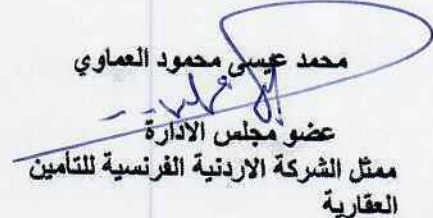 محمد عيسى محمود العماوي
عضو مجلس الادارة
ممثل الشركة الاردنية الفرنسية للتأمين
العقارية